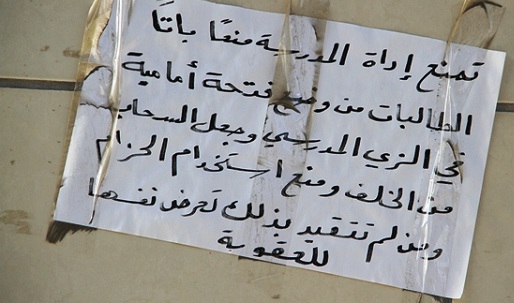 تمنع إداة المدرسية منعًا باتًا
الطالبات من وضع فتحة أمامية
في الزي المدرسي وجعل السحاب
من الخلف ومنع استخدام الحزام
ومن لم تتقيد بذلك تعرض نفسها
للعقوبة